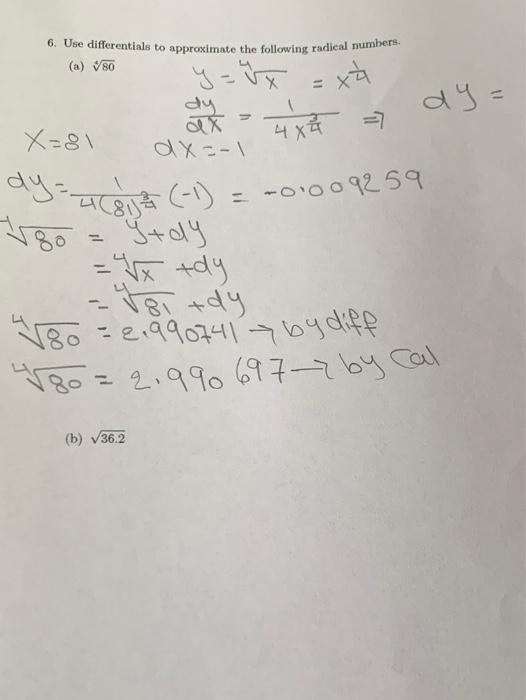 6. Use differentials to approximate the following radical numbers.
(a) ∜80
y = ∜x = x^(1/4)
dy/dx = 1/(4x^(3/4)) ⇒ dy =
x=81 dx=-1
dy = 1/(4(81)^(3/4)) (-1) = -0.009259
∜80 = y+dy
= ∜x +dy
= ∜81 +dy
∜80 = 2.990741 → by diff
∜80 = 2.990697 → by cal
(b) √36.2